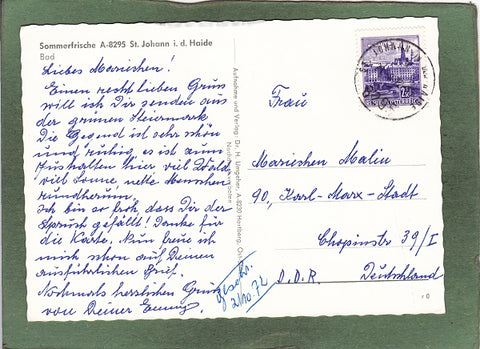 Sommerfrische A-8295 St. Johann i. d. Haide
Bad
Liebes Mariechen!
Einen recht lieben Gruß
will ich Dir senden aus
der grünen Steiermark
Die Gegend ist sehr schön
und ruhig, es ist zum
Aushalten hier viel Wald
viel Sonne, nette Menschen
rundherum.
Ich bin so froh, dass Dir der
Spruch gefällt! Danke für
die Karte. Nun freue ich
mich schon auf Deinen
ausführlichen Brief.
Nochmals herzlichen Gruß
von Deiner
2/10.72
Aufnahme und Verlag: Dr. H. A-8230 Hartberg,
Frau
Mariechen Malin
90, Karl-Marx-Stadt
Chopinstr 39/I
D.D.R. Deutschland